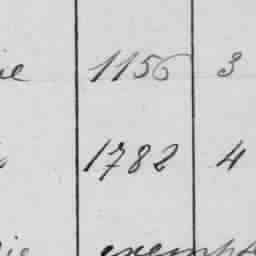 ie 1156 3
1782 4
ie exempt